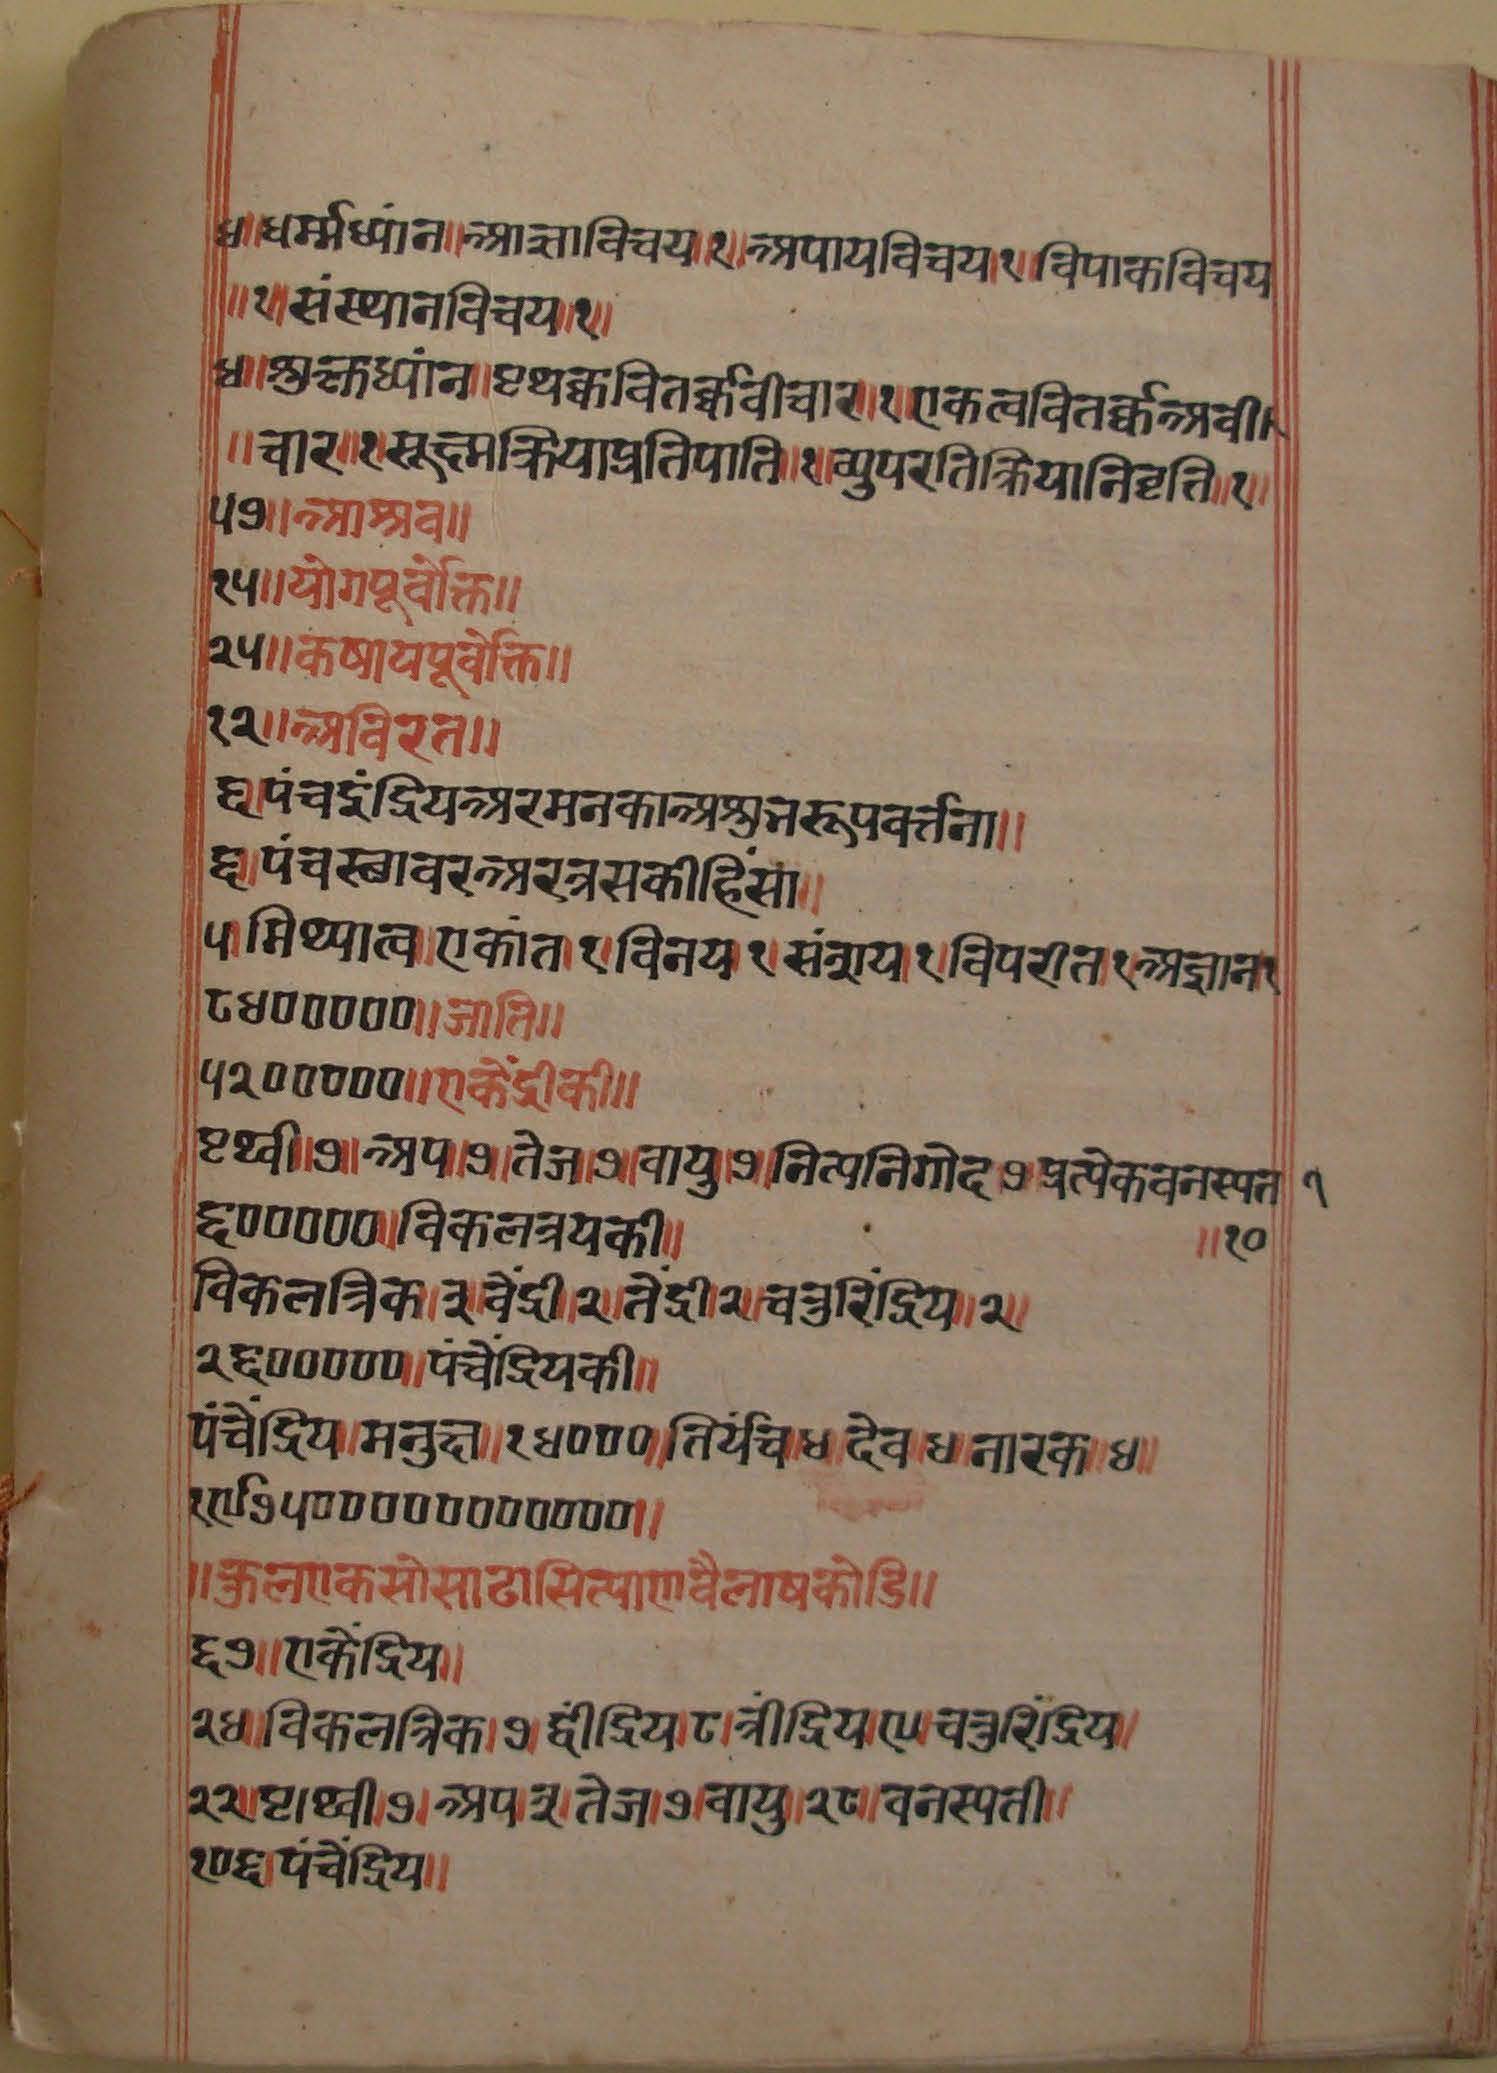 ४॥धर्म्मध्यांन॥आज्ञाविचय॥१॥अपायविचय॥१॥विपाकविचय
॥१॥संस्थानविचय॥१॥
४॥शुक्लध्यांन॥पृथक्कवितर्क्कवीचार॥१॥एकत्ववितर्क्कअवी॥
॥चार॥१॥सूक्ष्मक्रियाप्रतिपाति॥१॥व्युपरतिक्रियानिवृत्ति॥१॥
५७॥आश्रव॥
१५॥योगपूर्वोक्ति॥
२५॥कषायपूर्वोक्ति॥
१२॥अविरत॥
६।पंचइंद्रियअरमनकाअशुभरूपवर्त्तना॥
६।पंचस्थावरअरत्रसकीहिंसा॥
५।मिथ्यात्व।एकांत।१।विनय।१।संशय।१।विपरीत।१।अज्ञान१
८४०००००॥जाति॥
५२०००००॥एकेंद्रीकी॥
पृथ्वी॥७॥अप॥७॥तेज॥७॥वायु॥७॥नित्यनिगोद७प्रत्येकवनस्पत १
६०००००॥विकलत्रयकी॥ ॥१०
विकलत्रिक।३।वेंद्री।२।तेंद्री२।चतुरिंद्रिय॥२॥
२६०००००॥पंचेंद्रियकी॥
पंचेंद्रिय॥मनुक्ष॥१४०००॥तिर्यंच॥४॥देव॥४॥नारक॥४॥
१९७५००००००००००००॥
॥कुलएकसोसाढासित्याणवैलाषकोडि॥
६७॥एकेंद्रिय॥
२४॥विकलत्रिक।७।द्वींद्रिय।८।त्रींद्रिय।९।चतुरिंद्रिय।
२२॥पृ।थ्वी।७।अप।३।तेज।७।वायु॥२८॥वनस्पती॥
१०६।पंचेंद्रिय॥